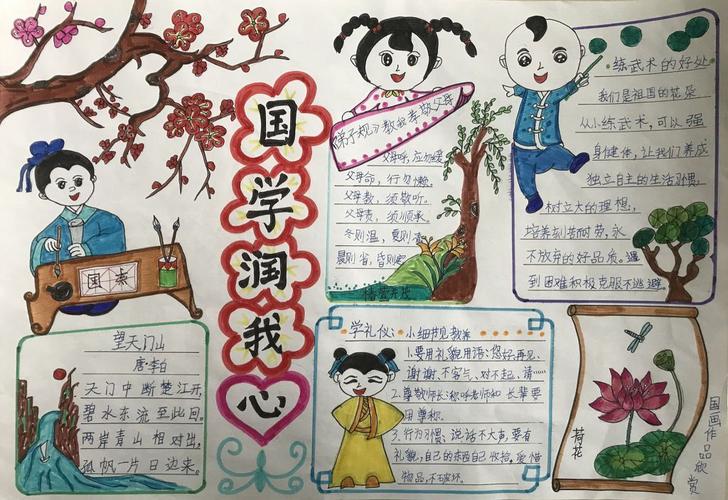 国学润我心
望天门山
唐·李白
天门中断楚江开,
碧水东流至此回。
两岸青山相对出,
孤帆一片日边来。
《弟子规》教我孝敬父母
父母呼,应勿缓
父母命,行勿懒。
父母教,须敬听。
父母责,须顺承。
冬则温,夏则
晨则省,昏则
练武术的好处
我们是祖国的花朵
从小练武术,可以强
身健体,让我们养成
独立自主的生活习惯,
树立大的理想,
培养刻苦耐劳,永
不放弃的好品质。遇
到困难积极克服不逃避。
学礼仪:小细节见教养
1.要用礼貌用语:您好、再见、
谢谢、不客气、对不起、请……
2.尊敬师长:称呼老师和长辈要
用尊称。
3.行为习惯:说话不大声,要有
礼貌,自己的东西自己收拾。爱惜
物品,不破坏。
荷花
国画作品欣赏